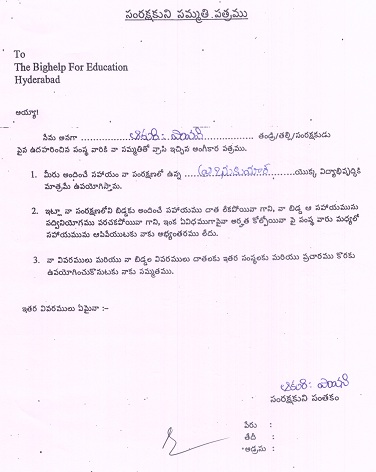 సంరక్షకుని సమ్మతి పత్రము
To
The Bighelp For Education
Hyderabad
అయ్యా!
నేను అనగా ........................................ తండ్రి/తల్లి/సంరక్షకుడు
పైన ఉదహరించిన సంస్థ వారికి నా సమ్మతితో వ్రాసి ఇచ్చిన అంగీకార పత్రము.
1. మీరు అందించే సహాయం నా సంరక్షణలో ఉన్న ........................యొక్క విద్యాభివృద్ధికి
మాత్రమే ఉపయోగిస్తాను.
2. ఇట్లా నా సంరక్షణలోని బిడ్డకు అందించే సహాయము దాత లేకపోయినా గాని, నా బిడ్డ ఆ సహాయమును
సద్వినియోగము పరచకపోయినా గాని, ఇంక ఏవిధముగానైనా అర్హత కోల్పోయినా పై సంస్థ వారు మధ్యలో
సహాయమును ఆపివేయుటకు నాకు అభ్యంతరము లేదు.
3. నా వివరములు మరియు నా బిడ్డల వివరములు దాతలకు ఇతర సంస్థలకు మరియు ప్రచారము కొరకు
ఉపయోగించుకొనుటకు నాకు సమ్మతము.
ఇతర వివరములు ఏమైనా :-
సంరక్షకుని సంతకం
పేరు :
తేదీ :
అడ్రసు :